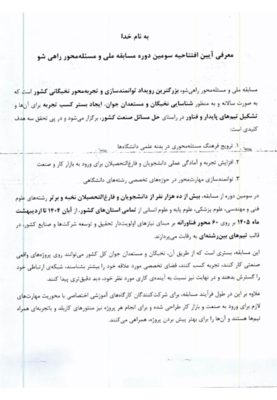 به نام خدا
معرفی آیین افتتاحیه سومین دوره مسابقه ملی و مسئله‌محور راهی شو
مسابقه ملی و مسئله‌محور راهی‌شو، بزرگترین رویداد توانمندسازی و تجربه‌محور نخبگانی کشور است که
به صورت سالانه و به منظور شناسایی نخبگان و مستعدان جوان، ایجاد بستر کسب تجربه برای آن‌ها و
تشکیل تیم‌های پایدار و فناور در راستای حل مسائل صنعت کشور، برگزار می‌شود و در پی تحقق سه هدف
کلیدی است:
۱. ترویج فرهنگ مسئله‌محوری در بدنه علمی دانشگاه‌ها
۲. افزایش تجربه و آمادگی عملی دانشجویان و فارغ‌التحصیلان برای ورود به بازار کار و صنعت
۳. توانمندسازی مهارت‌محور در حوزه‌های تخصصی رشته‌های دانشگاهی
در سومین دوره از مسابقه، بیش از ده هزار نفر از دانشجویان و فارغ‌التحصیلان نخبه و برتر رشته‌های علوم
فنی و مهندسی، علوم پزشکی، علوم پایه و علوم انسانی از تمامی استان‌های کشور، از آبان ۱۴۰۴ تا اردیبهشت
ماه ۱۴۰۵ بر روی ۶۰ محور فناورانه بر مبنای نیازهای اولویت‌دار تحقیق و توسعه شرکت‌ها و صنایع کشور، در
قالب تیم‌های بین‌رشته‌ای به رقابت می‌پردازند.
این مسابقه، بستری است که از طریق آن، نخبگان و مستعدان جوان کل کشور می‌توانند روی پروژه‌های واقعی
صنعتی کار کنند، تجربه کسب کنند، فضای تخصصی مورد علاقه خود را بیشتر بشناسند، شبکه‌ی ارتباطی خود
را گسترش بدهند و در نهایت نیز نسبت به آینده‌ی کاری مورد نظر خود، دید دقیق‌تری پیدا کنند.
علاوه بر این در طول فرآیند مسابقه، برای شرکت‌کنندگان کارگاه‌های آموزشی اختصاصی با محوریت مهارت‌های
لازم برای ورود به صنعت و بازار کار طراحی شده و برای انجام هر پروژه نیز منتورهای کاربلد و باتجربه‌ای همراه
تیم‌ها هستند و آن‌ها را برای بهتر پیش بردن پروژه، همراهی می‌کنند.